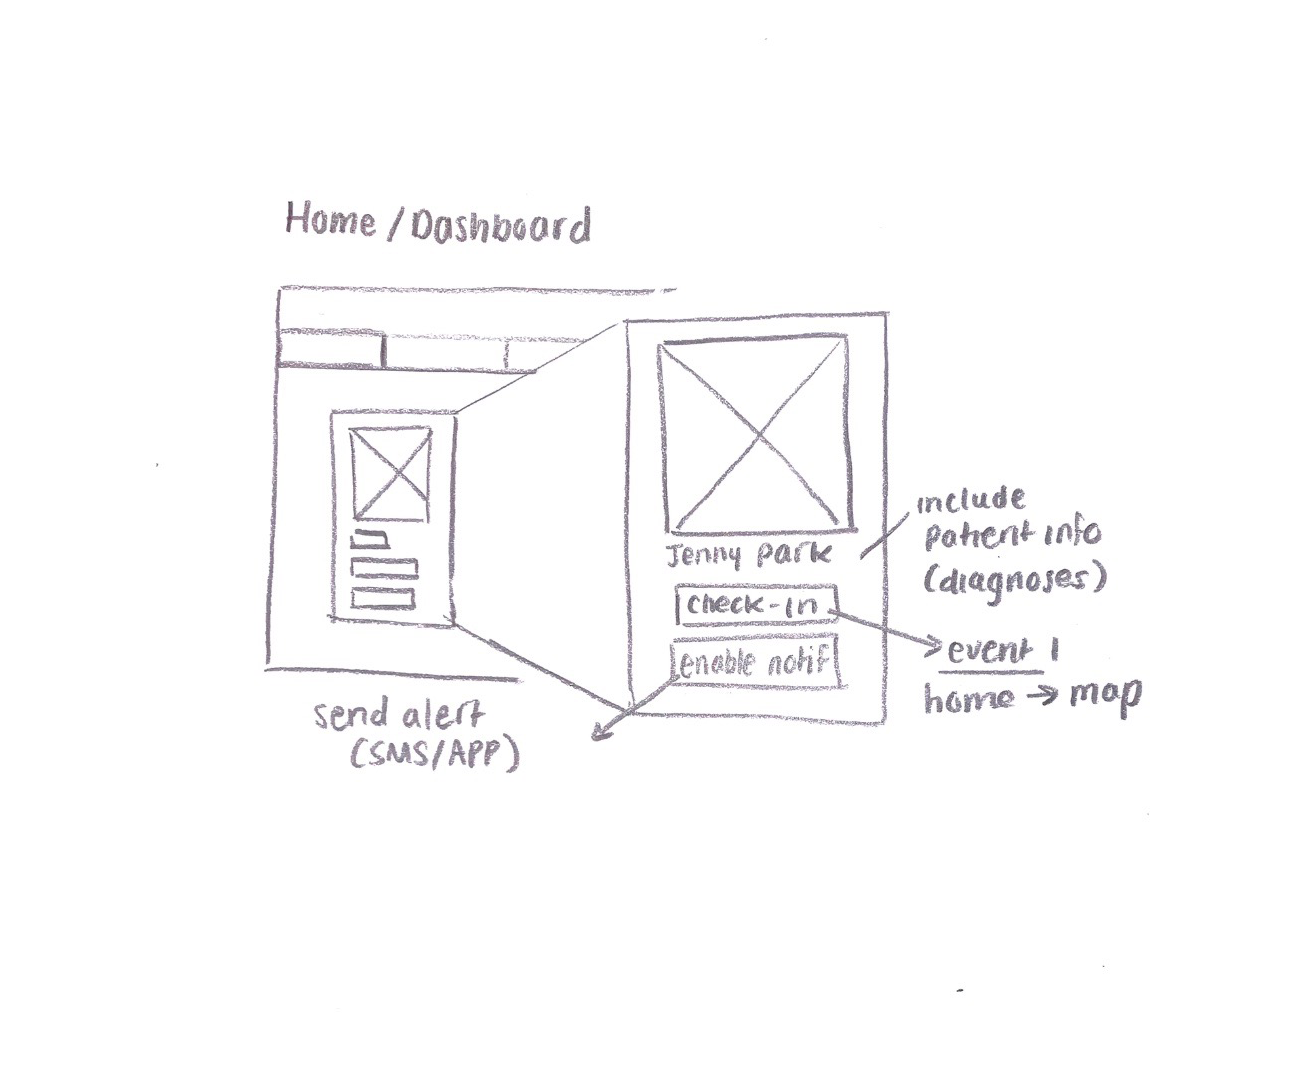 Home / Dashboard
Jenny Park
check-in
enable notif
include
patient info
(diagnoses)
event 1
home → map
send alert
(SMS/APP)